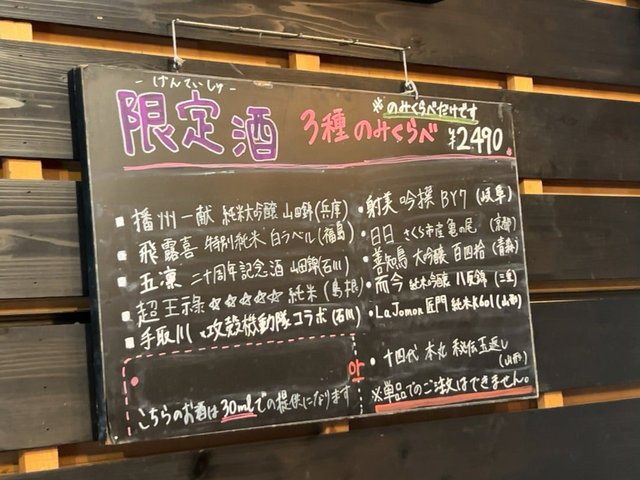 - げんていしゅ -
限定酒 3種のみくらべ ¥2490
※のみくらべだけです
■ 播州一献 純米大吟醸 山田錦(兵庫)
■ 飛露喜 特別純米 白ラベル(福島)
■ 五凛 二十周年記念酒 山田錦(石川)
■ 超王祿 ☆☆☆☆☆ 純米(島根)
■ 手取川 ×攻殻機動隊コラボ(石川)
こちらのお酒は30mlでの提供になります
• 射美 吟撰 BY7(岐阜)
• 日日 さくら市産亀の尾(京都)
• 善知鳥 大吟醸 百四拾(青森)
• 而今 純米吟醸 八反錦(三重)
• La Jomon 匠門 純米K601(山形)
• 十四代 本丸 秘伝玉返し
(山形)
※単品でのご注文はできません。